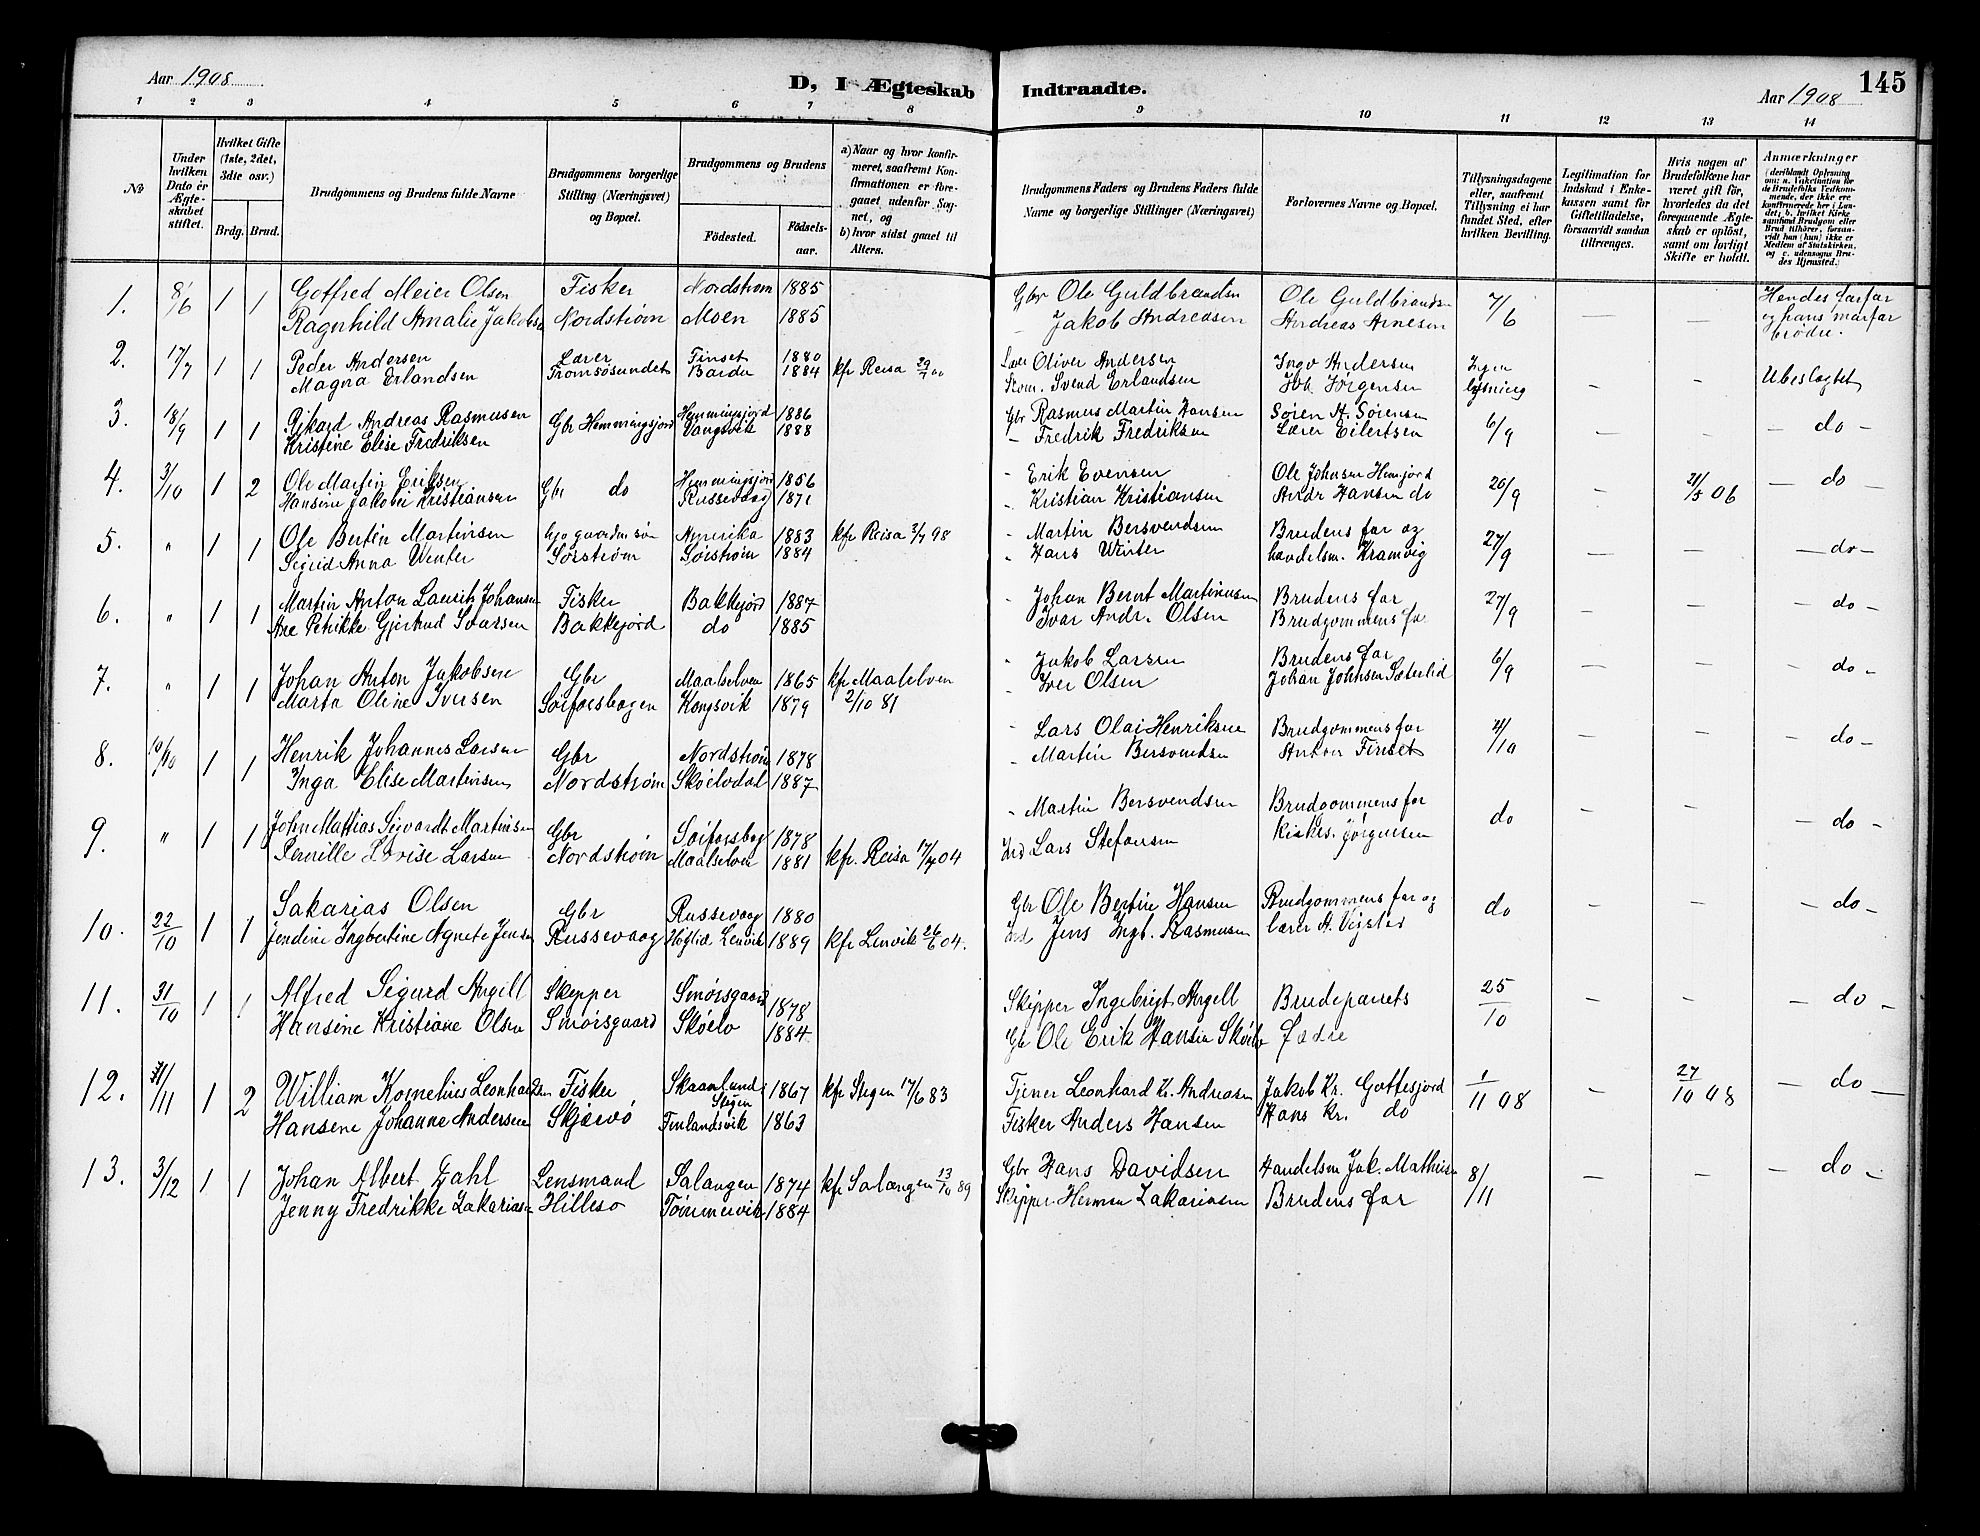 Aar 1908
D, I Ægteskab Indtraadte.
Aar 1908
145
1 2 3 4 5 6 7 8 9 10 11 12 13 14
№
Under hvilken Dato er Ægteskabet stiftet.
Hvilket Gifte (1ste, 2det, 3die osv.)
Brdg. Brud.
Brudgommens og Brudens fulde Navne
Brudgommens borgerlige Stilling (Næringsvei) og Bopæl.
Brudgommens og Brudens
Fødested.
Fødselsaar.
a) Naar og hvor konfirmeret, saafremt Konfirmationen er foregaaet udenfor Sognet, og
b) hvor sidst gaaet til Alters.
Brudgommens Faders og Brudens Faders fulde Navne og borgerlige Stillinger (Næringsvei)
Forlovernes Navne og Bopæl.
Tillysningsdagene eller, saafremt Tillysning ei har fundet Sted, efter hvilken Bevilling.
Legitimation for Indskud i Enkekassen samt for Giftetilladelse, forsaavidt saadan tiltrænges.
Hvis nogen af Brudefolkene har været gift før, hvorledes da det foregaaende Ægteskab er opløst, samt om lovligt Skifte er holdt.
Anmærkninger (deriblandt Oplysning om: a. Vakcination for de Brudefolks Vedkommende, der ikke ere konfirmerede her i Landet; b. hvilket Kirkesamfund Brudgom eller Brud tilhører, forsaavidt han (hun) ikke er Medlem af Statskirken, og c. udensogns Brudes Hjemsted.)
1. 8/6 1 1 Gotfred Meier Olsen Fisker Nordstrøm 1885 Gbr Ole Guldbrandsn Ole Guldbrandsn 7/6 — — Hendes farfar
Ragnhild Amalie Jakobsn Nordstrøm Moen 1885 – Jakob Andreasen Andreas Arnesen og hans morfar
brødre.
2. 17/7 1 1 Peder Andersen Lærer Finset 1880 kfr Reisa 29/7 00 Lær Oliver Andersen Ingv Andersen Ingen – – Ubeslægtet
Magna Erlandsen Tromsøsundet Bardu 1884 Svend Erlandsen Joh. Jörgensen lysning
3. 18/9 1 1 Rikard Andreas Rasmusen Gbr Hemmingsjord Hemmingsjord 1886 Gbr Rasmus Martin Hansen Søren A. Sørensen 6/9 — – – do –
Kristine Elise Fredriksen Vangsvik 1888 – Fredrik Fredriksen Lærer Eilertsen
4. 3/10 1 2 Ole Martin Eriksen Gbr do Hemmingsjord 1856 – Erik Evensen Ole Johnsen Hemjord 20/9 – 21/5 06 — do —
Hansine Jakobei Kristiansen Russevaag 1871 – Kristian Kristiansen Andr Hansen do
5. " 1 1 Ole Bertin Martinsen gaardm. søn Amerika 1883 kfr Reisa 3/7 98 – Martin Bersvendsen Brudens far og 27/9 — — — do —
Sigrid Anna Winter Sørstrøm Sørstrøm 1884 – Hans Winter handelsm. Kramvig
6. " 1 1 Martin Anton Laurits Johansen Fisker Bakkejord 1887 – Johan Bernt Martinusen Brudens far 27/9 – – – do –
Ane Petrikke Gjertrud Ivarsen Bakkejord do 1885 Ivar Andr. Olsen Brudgommens far
7. " 1 1 Johan Anton Jakobsen Gbr Maalselven 1865 kfr Maalselven – Jakob Larsen Brudens far 6/9 — — – do –
Marta Oline Iversen Sørforsbogen Kongsvik 1879 2/10 81 – Iver Olsen Johan Johnsen Sæterlid
8. 10/10 1 1 Henrik Johannes Larsen Gbr Nordstrøm 1878 – Lars Olai Henriksen Brudgommens far 4/10 — — – do –
Inga Elise Martinsen Nordstrøm Skøelvdal 1887 – Martin Bersvendsen Anton Finset
9. " 1 1 John Mattias Sigvardt Martinsen Gbr Sørforsbog 1878 – Martin Bersvendsen Brudgommens far do – – – do –
Pernille Lovise Larsen Nordstrøm Maalselven 1881 kfr. Reisa 17/7 04 Ind Lars Stefansen Kirkes. Jørgensen
10. 22/10 1 1 Sakarias Olsen Gbr Russevaag 1880 Gbr Ole Bertin Hansen Brudgommens far og do – – – do –
Jendine Ingbertine Agnete Jensen Russevaag Høglid Lenvik 1889 kfr Lenvik 26/6 04. Ind Jens Ingb. Rasmusen lærer A. Vigstad
11. 31/10 1 1 Alfred Sigurd Angell Skipper Smørsgaard 1878 Skipper Ingebrigt Angell Brudeparrets 25/10 – – – do –
Hansine Kristiane Olsen Smørsgaard Skøelv 1884 Gbr Ole Erik Hansen Skøelv fædre
12. 1 2 William Kornelius Leonhardsen Fisker Skaanlund Stegen 1867 kfr Stegen 17/6 83 Tjener Leonhard Kr. Andreasen Jakob Kr. Gottesjord 1/11 08 – 27/10 08 – do —
Hansene Johanne Andersen Skjævø Finlandsvik 1863 Fisker Anders Hansen Hans Kr. do
13. 3/12 1 1 Johan Albert Dahl Lensmand Salangen 1874 kfr Salangen 13/10 89 Gbr Hans Davidsen Handelsm Jak. Mathisen 8/11 – – – do –
Jenny Fredrikke Zakariasen Hillesø Tømmervik 1884 Skipper Herman Zakariasen Brudens far